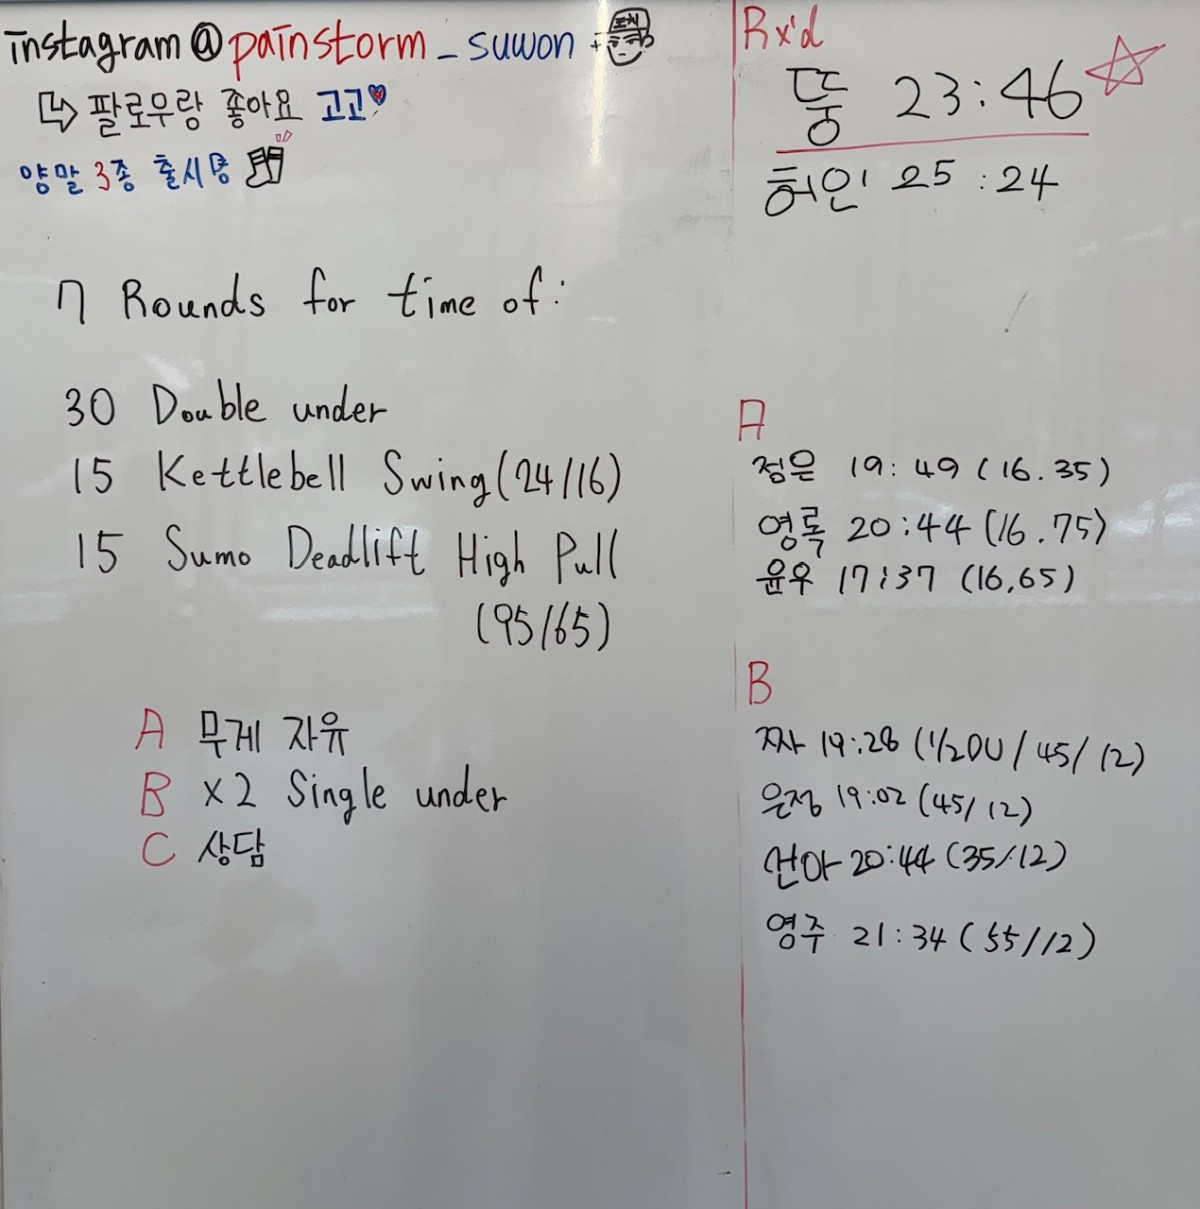 instagram@painstorm_suwon
팔로우랑 좋아요 고고
양말 3종 출시명
7 Rounds for time of:
30 Double under
15 Kettlebell Swing(24/16)
15 Sumo Deadlift High Pull
(95/65)
A 무게 자유
B x2 Single under
C 상담
Rx'd
뚱 23:46
허인 25:24
A
정은 19:49(16.35)
영록 20:44(16.75)
윤우 17:37 (16,65)
B
짜 19:28 (1/2DU/45/12)
은정 19:02(45/12)
선아 20:44(35/12)
영주 21:34(55/12)